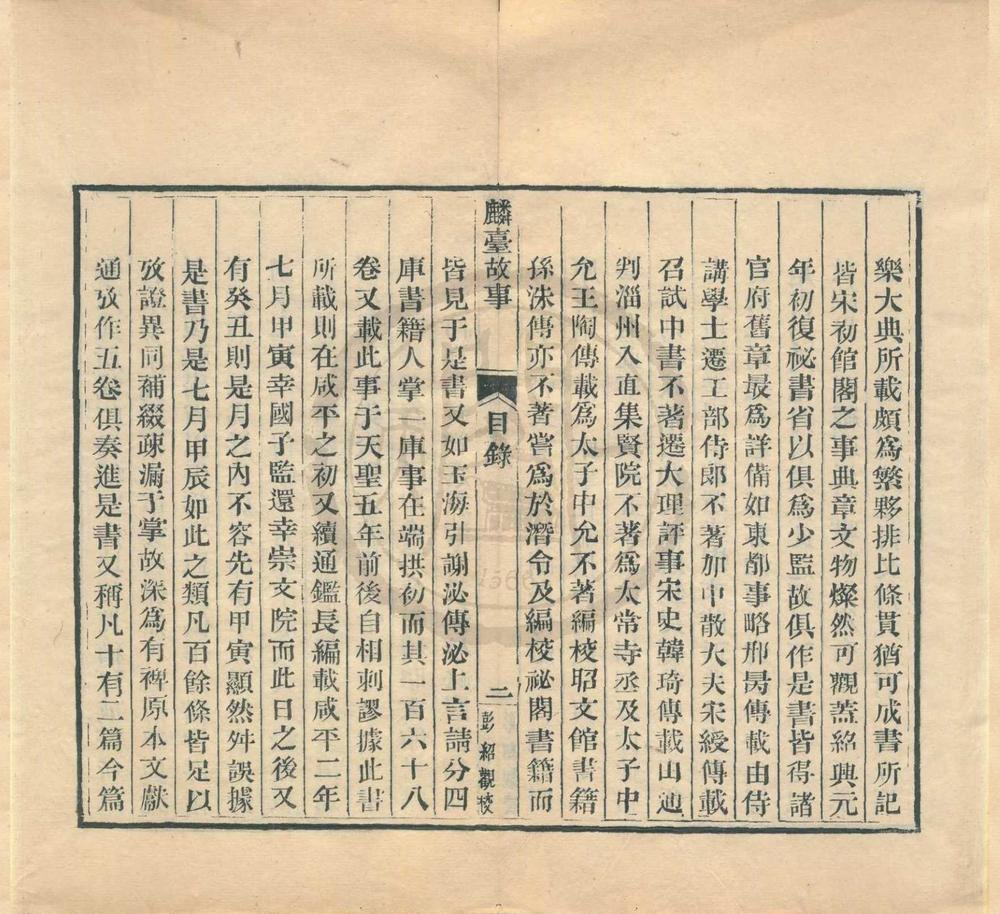 樂大典所載頗爲繁夥排比條貫猶可成書所記
皆宋初館閣之事典章文物燦然可觀蓋紹興元
年初復祕書省以俱爲少監故俱作是書皆得諸
官府舊章最爲詳備如東都事略邢昺傳載由侍
講學士遷工部侍郎不著加中散大夫宋綬傳載
召試中書不著遷大理評事宋史韓琦傳載由通
判淄州入直集賢院不著爲太常寺丞及太子中
允王陶傳載爲太子中允不著編校昭文館書籍
孫洙傳亦不著嘗爲於潛令及編校祕閣書籍而
麟臺故事
目錄
二
彭紹觀校
皆見于是書又如玉海引謝泌傳泌上言請分四
庫書籍人掌一庫事在端拱初而其一百六十八
卷又載此事于天聖五年前後自相刺謬據此書
所載則在咸平之初又續通鑑長編載咸平二年
七月甲寅幸國子監還幸崇文院而此日之後又
有癸丑則是月之內不容先有甲寅顯然舛誤據
是書乃是七月甲辰如此之類凡百餘條皆足以
攷證異同補綴疎漏于掌故深爲有裨原本文獻
通攷作五卷俱奏進是書又稱凡十有二篇今篇